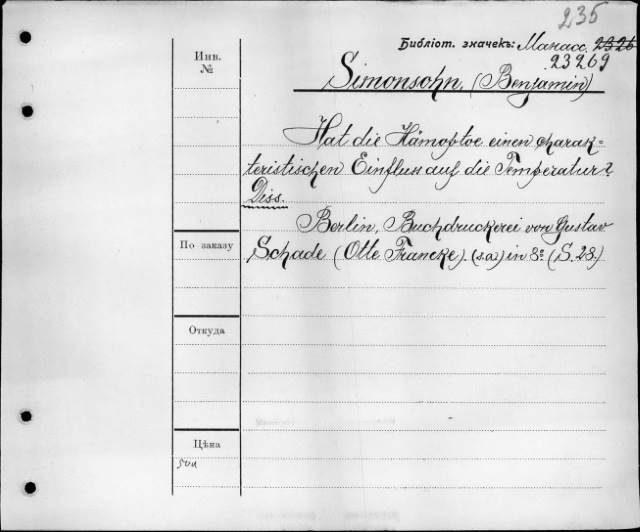 235
Библіот. значекъ: Манасс. 2326
23269
Инв.
№
Simonsohn, (Benjamin)
Hat die Hämoptoe einen charak=
teristischen Einfluss auf die Temperatur?
Diss.
Berlin, Buchdruckerei von Gustav
Schade (Otto Francke). (s.a.) in 8º (S. 28.)
По заказу
Откуда
Цѣна